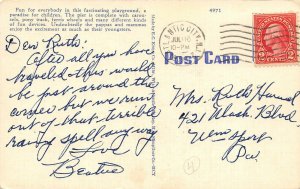 Fun for everybody in this fascinating playground, a
paradise for children. The plot is complete with carrou-
sels, pony track, ferris wheels and many different kinds
of fun devices. Undoubtedly the papas and mammas
enjoy the observation even more.
4971
Dear Ruth:
After all you have
traveled this would
be just around the
corner but we runn
out of that terrible
rainy spell any way
Love
Beatrice
POST CARD
ATLANTIC CITY, N.J.
JUL 10
10-PM
2 CENTS 2
Mrs. Ruth
421 Wash. Blvd
Wmsport
Pa.
4